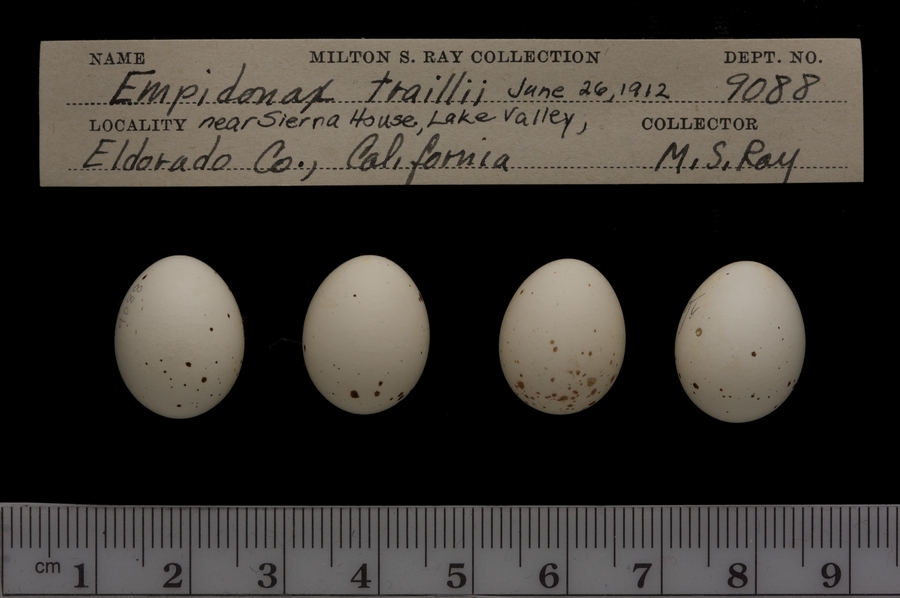 NAME MILTON S. RAY COLLECTION DEPT. NO.
Empidonax traillii June 26, 1912 9088
LOCALITY near Sierra House, Lake Valley, COLLECTOR
Eldorado Co., California M. S. Ray
9088
cm 1 2 3 4 5 6 7 8 9